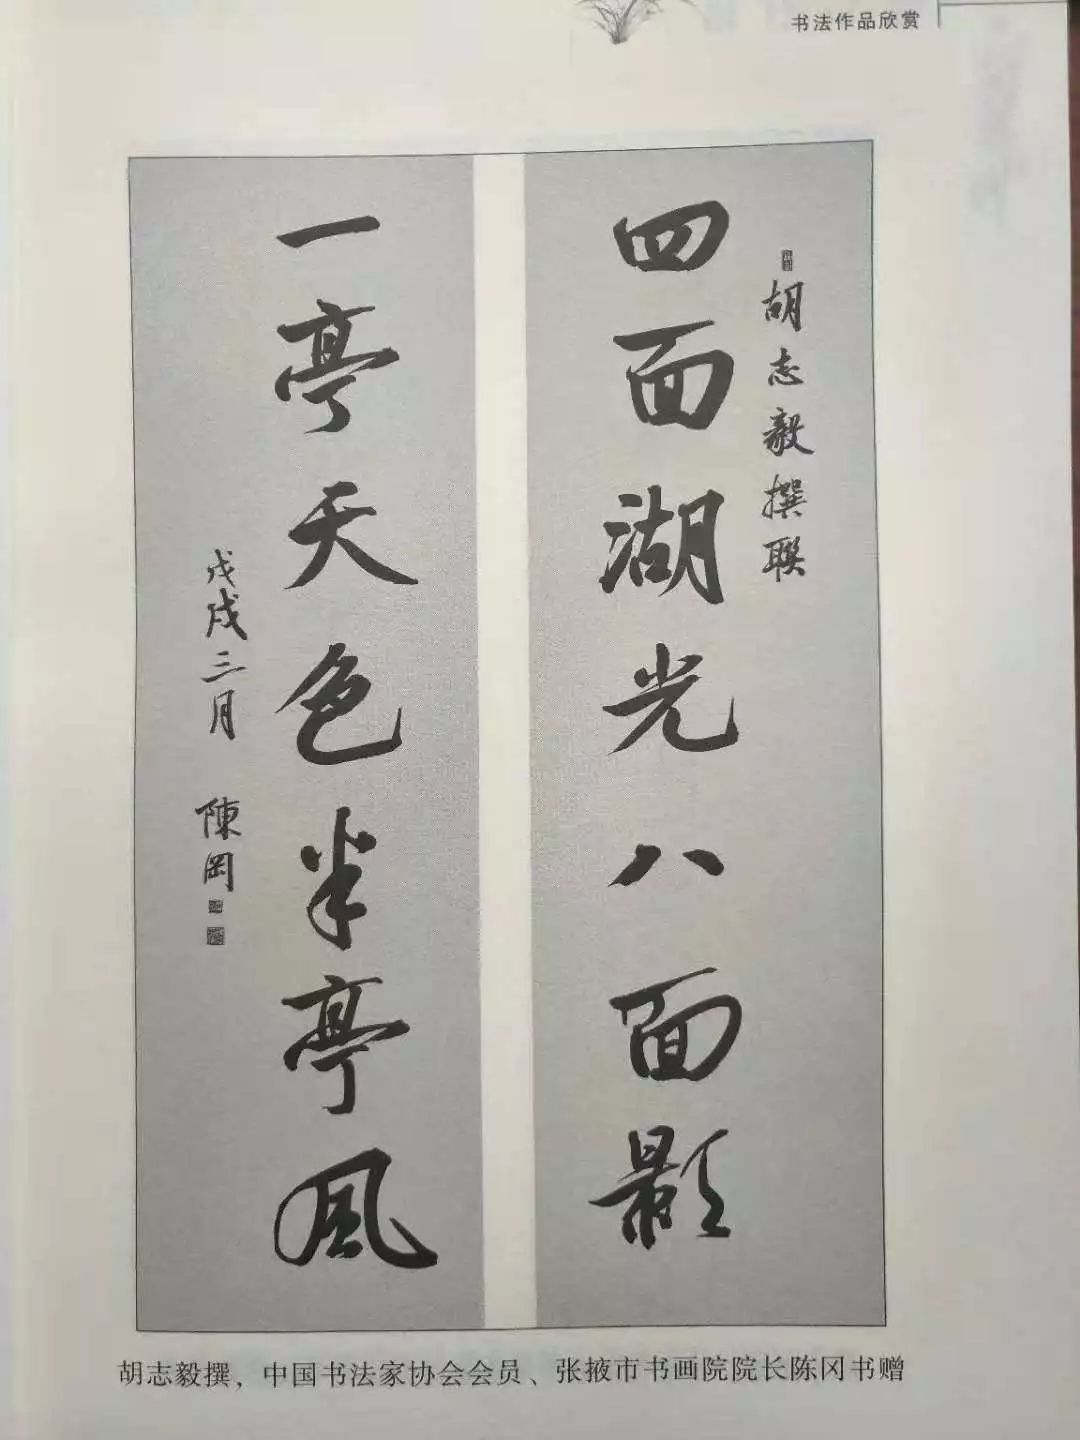 书法作品欣赏
胡志毅撰联
四面湖光八面影
一亭天色半亭风
戊戌三月 陳岡
胡志毅撰，中国书法家协会会员、张掖市书画院院长陈冈书赠